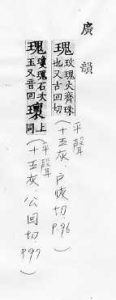 廣韻
瑰 玫瑰火齊珠
也又古回切
平聲
(十五灰,戶恢切,P.96)
瑰 瓊瑰石次
玉又音回 瓌 上同
平聲
(十五灰,公回切,P.97)